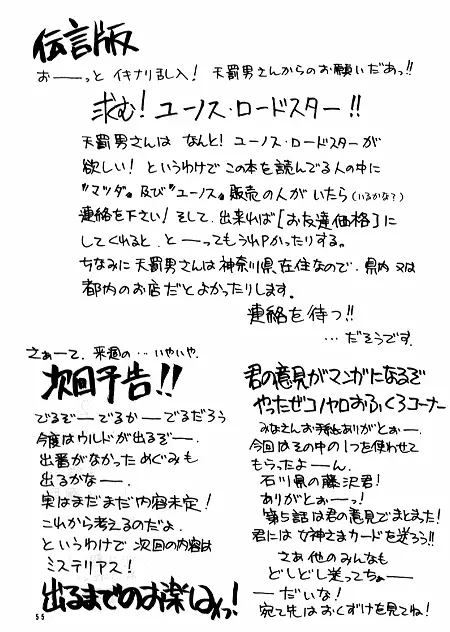 伝言版
おーーっと イキナリ乱入! 天罰男さんからのお願いだあっ!!
求む! ユーノス・ロードスター!!
天罰男さんは なんと! ユーノス・ロードスターが
欲しい! というわけで この本を読んでる人の中に
〝マツダ〟及び〝ユーノス〟販売の人がいたら(いるかな?)
連絡を下さい! そして、出来れば[お友達価格]に
してくれると、とーーってもうれPかったりする。
ちなみに天罰男さんは神奈川県在住なので、県内 又は
都内のお店だとよかったりします。
連絡を待つ!!
…だそうです。
さぁーて、来週の…いやいや、
次回予告!!
でるぞー でるかー でるだろう
今度はウルドが出るぞー。
出番がなかっためぐみも
出るかなー。
実はまだまだ内容未定!
これから考えるのだよ。
というわけで 次回の内容は
ミステリアス!
出るまでのお楽しみっ!
君の意見がマンガになるぞ
やったぜコノヤロおふくろコーナー
みなさんお手紙ありがとぉー。
今回はその中の1つを使わせて
もらったよーん。
石川県の藤沢君!
ありがとぉーっ!
第5話は君の意見でまとまった!
君には女神さまカードを送ろう!!
さあ 他のみんなも
どしどし送ってちょーー
ーだいな!
宛て先はおくずけを見てね!
55